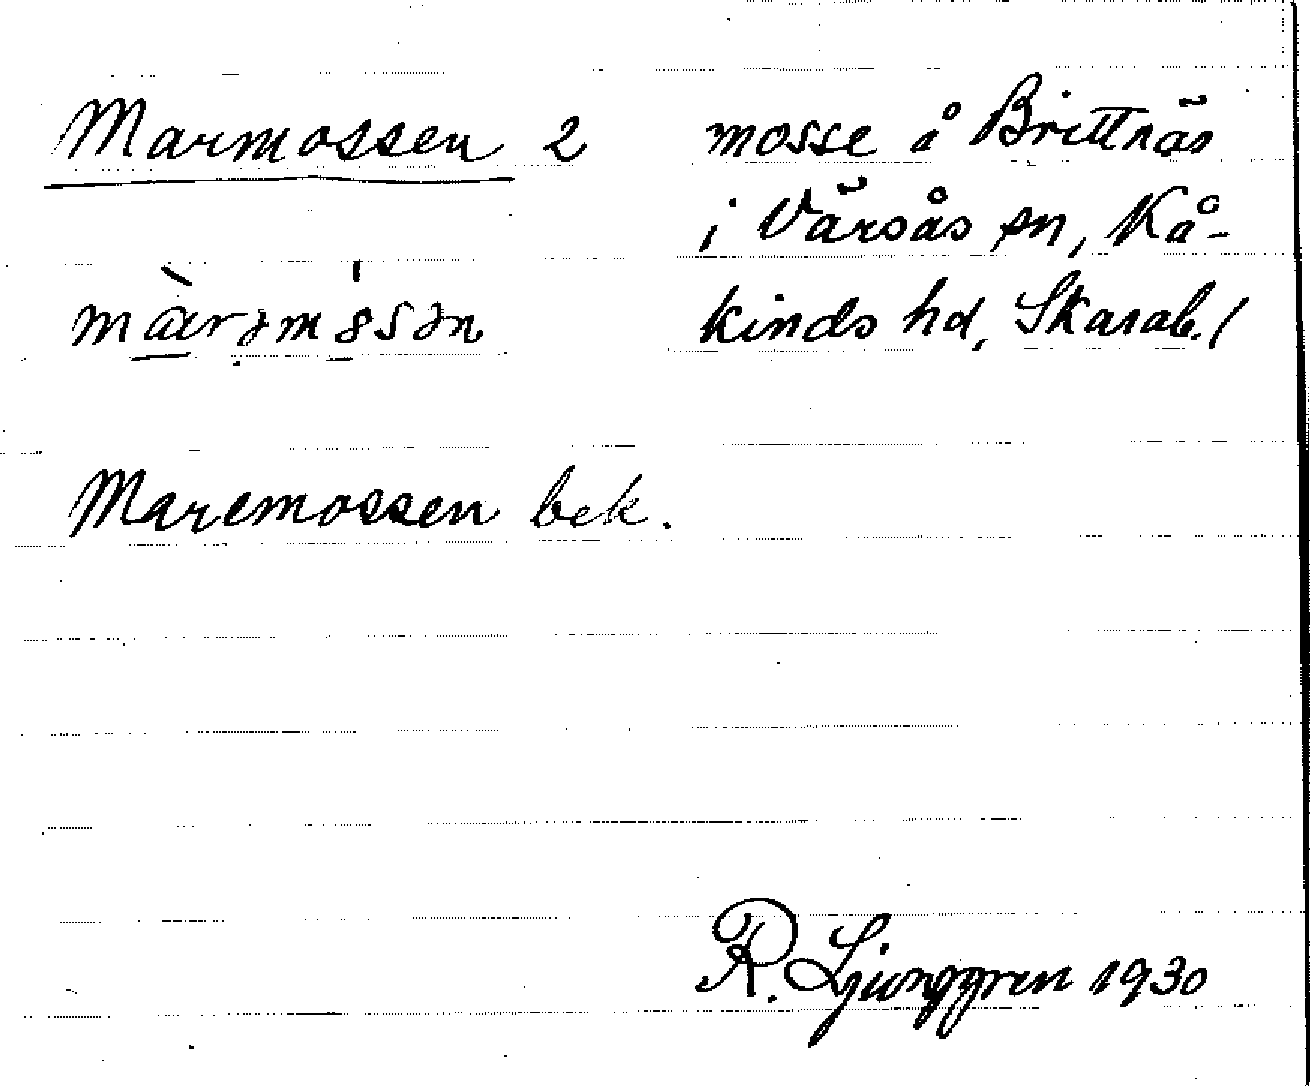 Marmossen 2
mosse å Brittnäs
i Värsås sn, Kå-
kinds hd, Skarab. l
mɑ̀rəmɵ́sən
Maremossen bek.
R. Ljunggren 1930